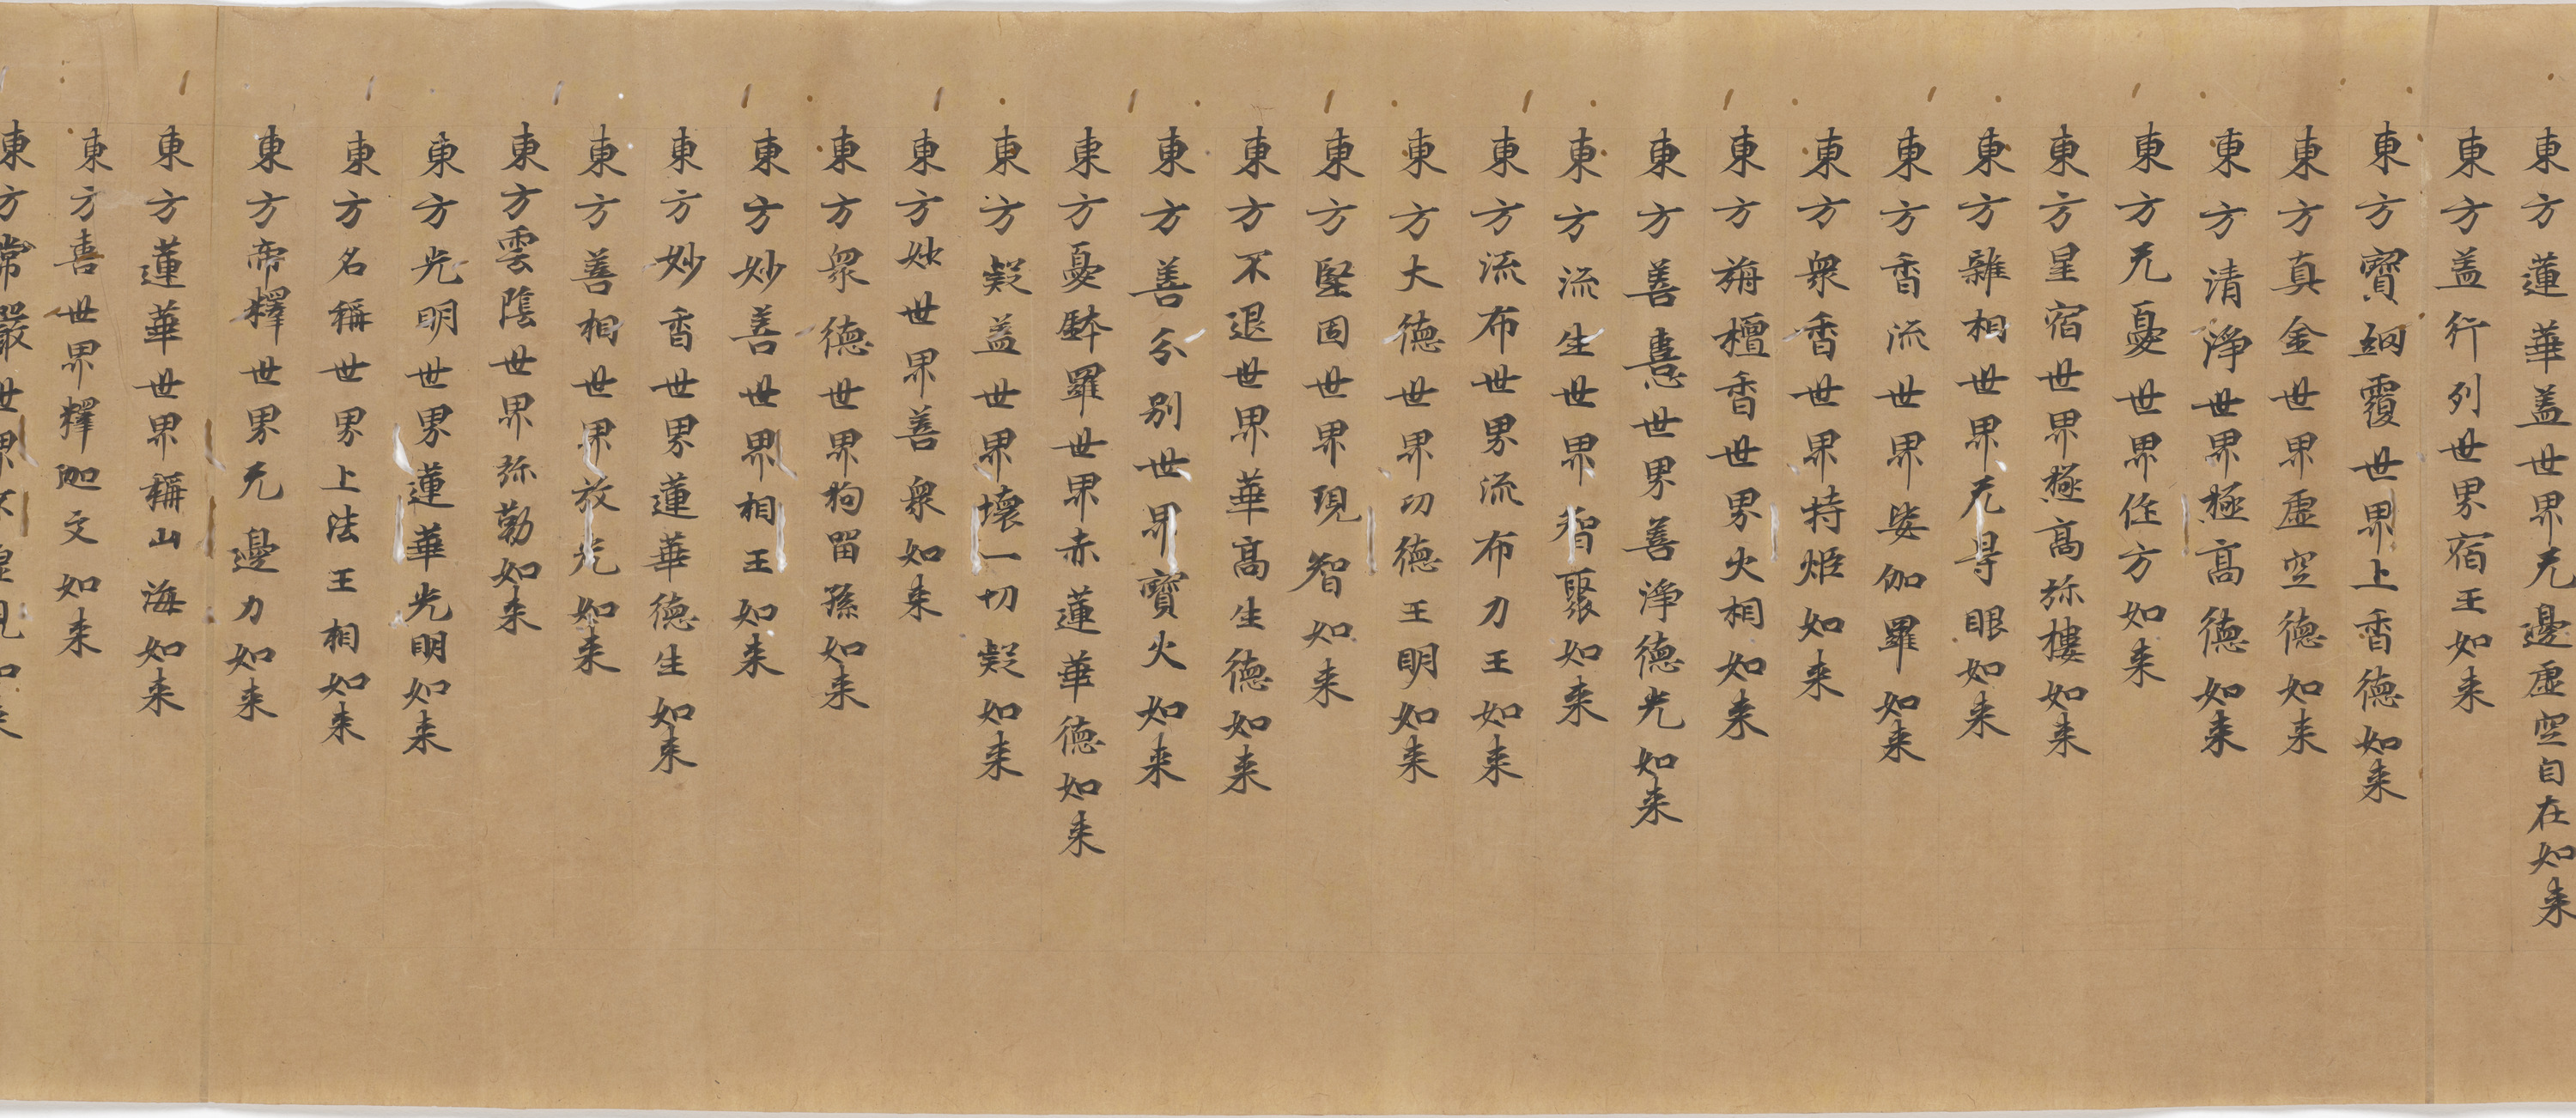 東方蓮華盖世界无邊虚空自在如来
東方盖行列世界宿王如来
東方寳網覆世界上香徳如来
東方真金世界虚空徳如来
東方清浄世界極髙徳如来
東方无憂世界作方如来
東方星宿世界極髙弥樓如来
東方雜相世界无㝵眼如来
東方香流世界娑伽羅如来
東方衆香世界持炬如来
東方栴檀香世界火相如来
東方善憙世界善浄徳光如来
東方流生世界智聚如来
東方流布世界流布力王如来
東方大徳世界功徳王明如来
東方堅固世界現智如来
東方不退世界華髙生徳如来
東方善分别世界寳火如来
東方憂鉢羅世界赤蓮華徳如来
東方疑盖世界壊一切疑如来
東方妙世界善衆如来
東方衆徳世界狗留孫如来
東方妙善世界相王如来
東方妙香世界蓮華徳生如来
東方善相世界放光如来
東方雲蔭世界弥勒如来
東方光明世界蓮華光明如来
東方名稱世界上法王相如来
東方帝釋世界无邊力如来
東方蓮華世界稱山海如来
東方喜世界釋迦文如来
東方常嚴世界不虚見如来